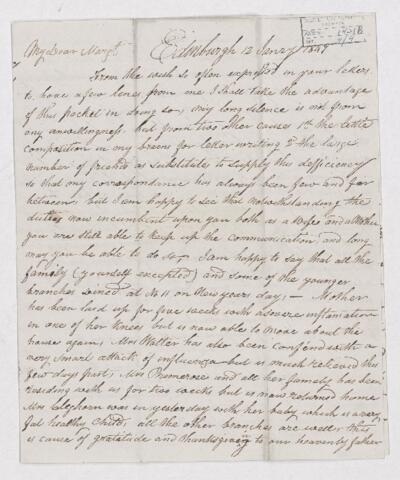 Edinburgh 12 Janry 1849
My Dear Margt
From the wish so often expressed in your letters
to have a few lines from me I shall take the advantage
of this packet in doing so, my long silence is not from
any unwillingness but from two other causes 1st the little
composition in my brains for letter writing 2d the large
number of friends as substitutes to supply this defficiency
so that my correspondance has always been few and far
between, but I am happy to see that notwithstanding the
duties now incumbent upon you both as a Wife and a Mother
you are still able to keep up the communication, and long
may you be able to do so, I am happy to say that all the
family (yourself excepted) and some of the younger
branches joined at No 11 on New years day, — Mother
has been laid up for five weeks with a severe inflamation
in one of her knees but is now able to move about the
house again, Mrs Walter has also been confined with a
very smart attack of influenza but is much relieved this
few days past, Mrs Primerose and all her family has been
residing with us for two weeks but is now returned home
Mrs Cleghorn was in yesterday with her baby which is a very
fat healthy child, all the other branches are well, this
is cause of gratitude and thanksgiving to our heavenly father